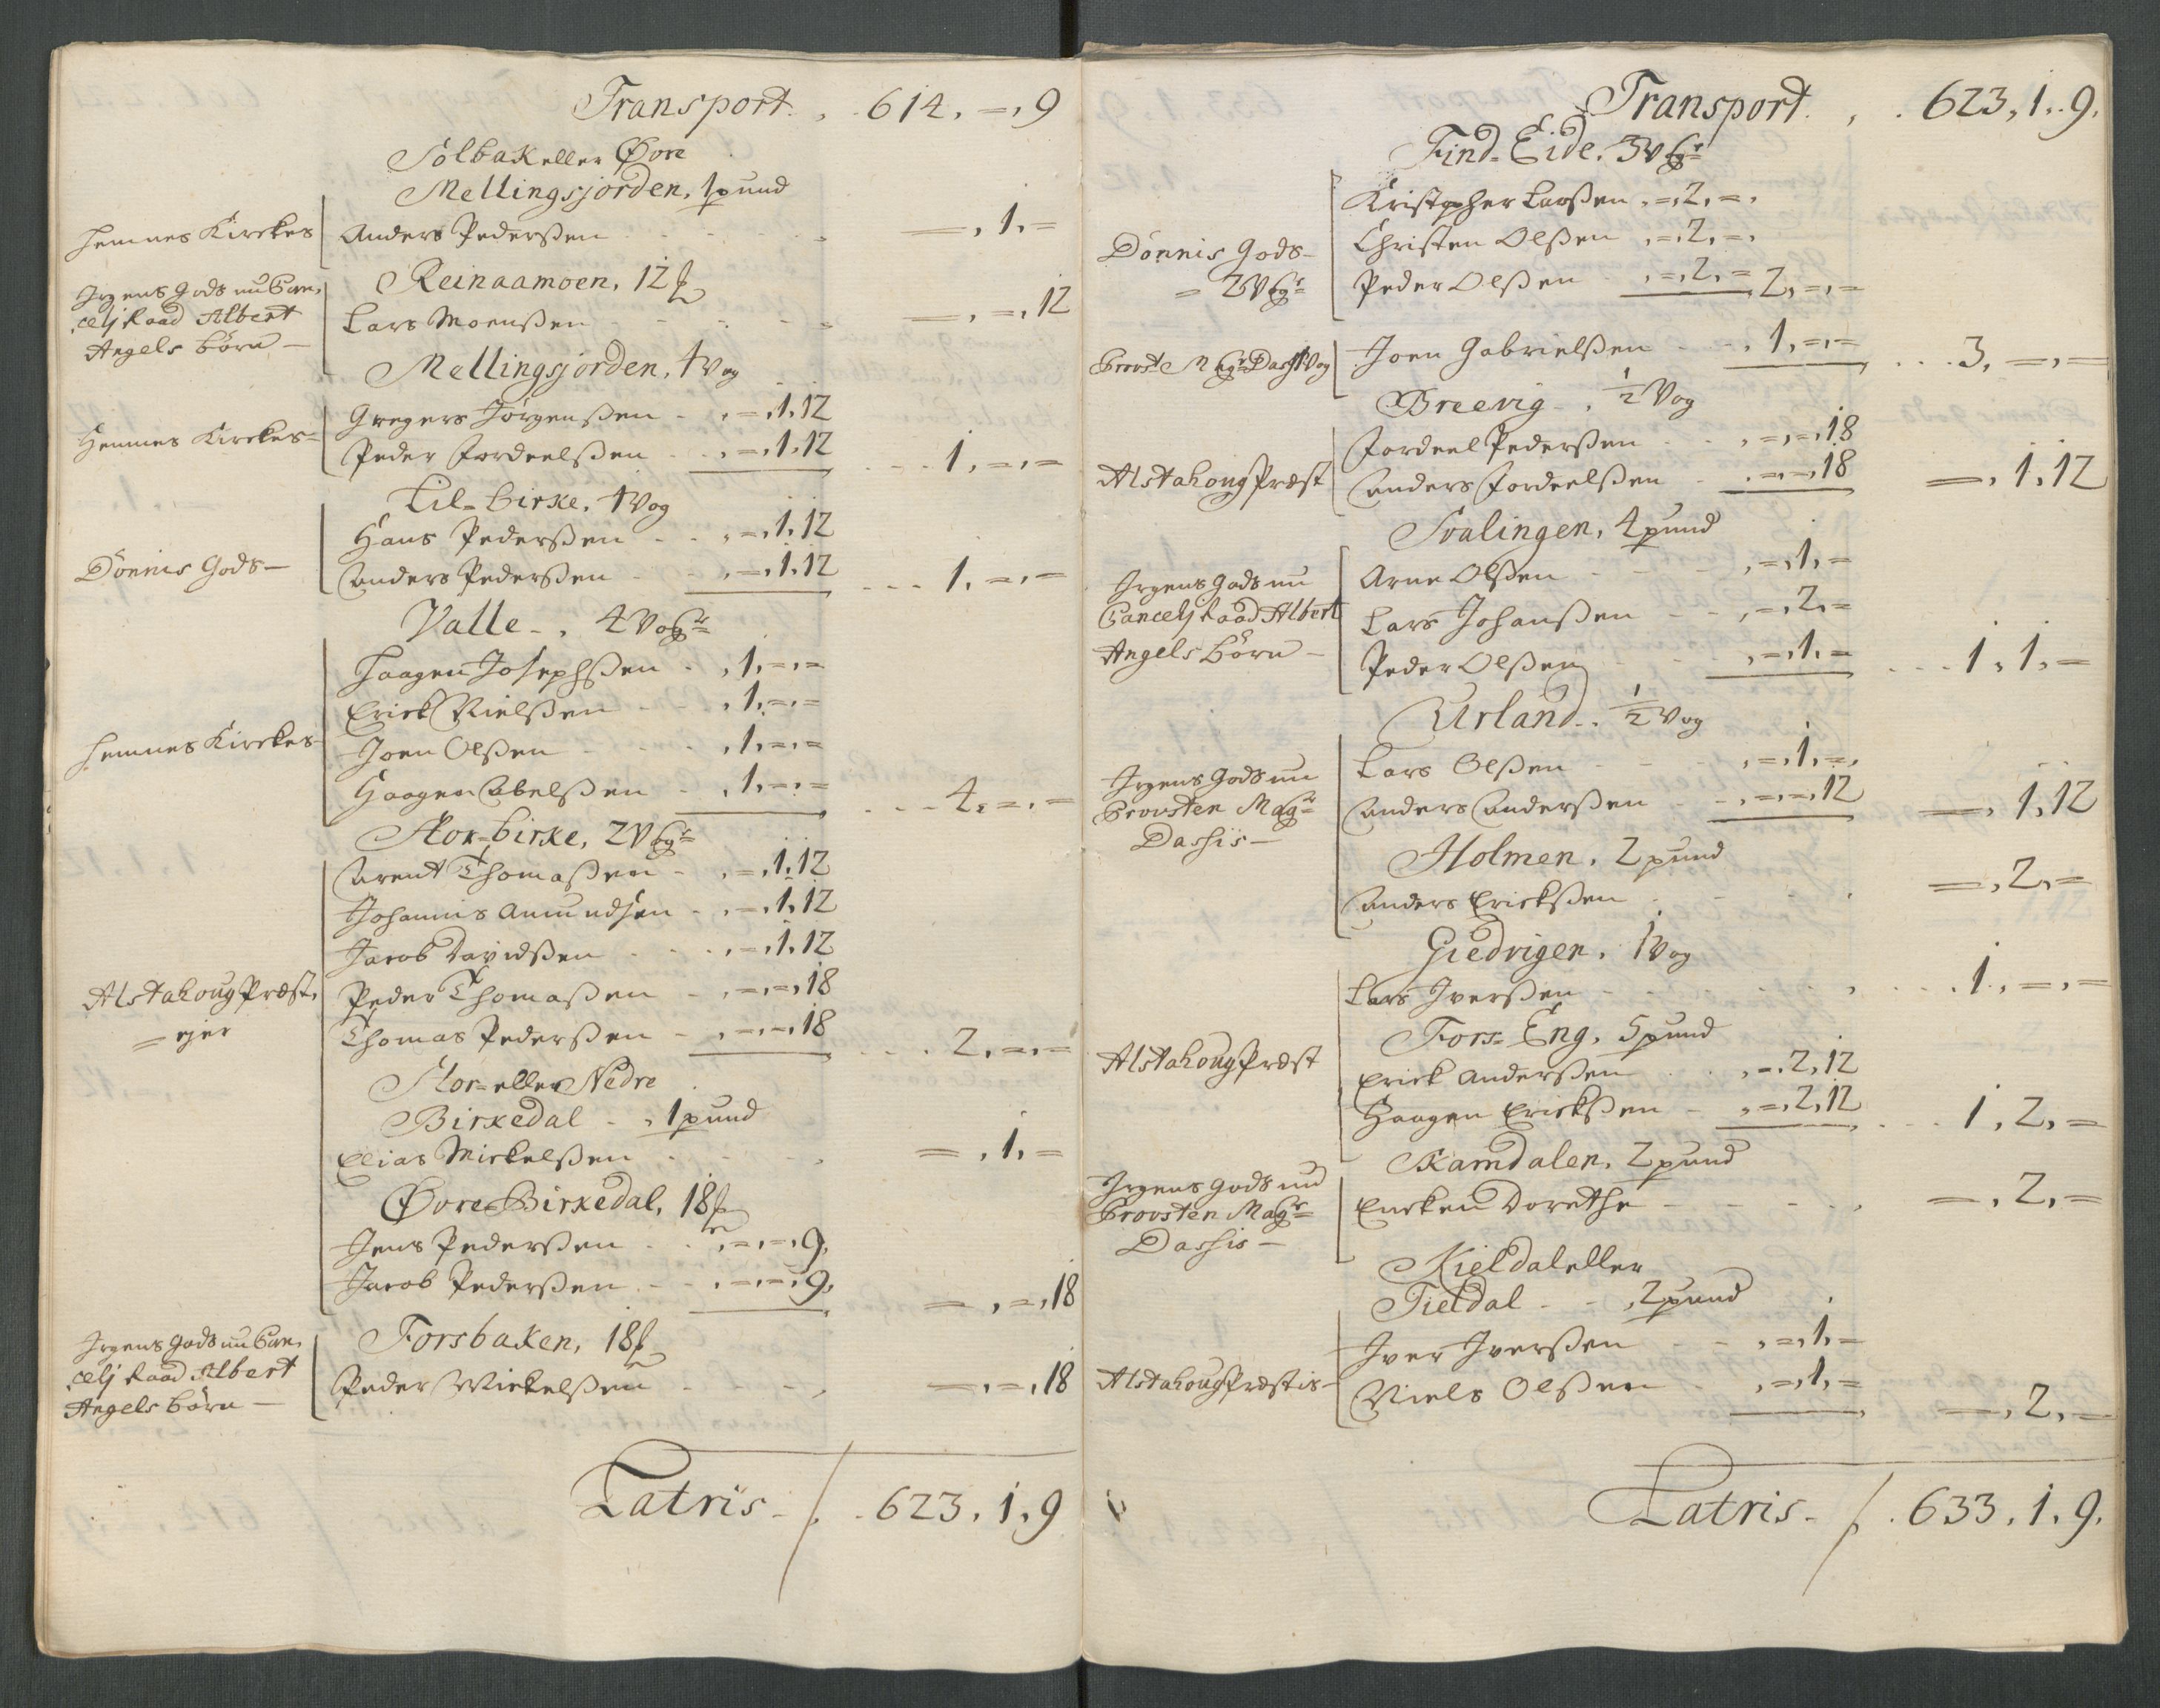 Transport . . 614. =. 9
Solbak eller Øvre
Mellingsjorden. 1 pund
Hemnes Kirckes
Anders Pederßen . . . . =. 1. =
Reinaamoen. 12 ℔
Irgens Gods nu Can,
celj Raad Albert
Angels børn —
Lars Moenßen - - - =. =. 12
Mellingsjorden. 1 Vog
Hemnes Kirckes =
Gregers Jörgenßen - . =. 1. 12
Peder Fordeelßen . . =. 1. 12 . . . 1. =. =
Lil-birke. 1 Vog
Dönnis Gods —
Hans Pederßen . . =. 1. 12
Anders Pederßen . . =. 1. 12 . . . 1. =. =
Valle - . 4 Vogr
Hemnes Kirckes
Haagen Josephßen . . 1. =. =
Erick Nielßen . . . 1. =. =
Joen Olßen . . . 1. =. =
Haagen Abelßen . . 1. =. = . . . 4. =. =
Stor-birke. 2 Vogr
Arent Thomaßen - . =. 1. 12
Johannis Amundsen . =. 1. 12
Jacob Davidßen . . . =. 1. 12
Alstahoug Præst,
= ejer
Peder Thomaßen - . =. =. 18
Thomas Pederßen - . =. =. 18 . . . 2. =. =
Stor- eller Nedre
Birkedal - . 1 pund
Elias Mickelßen . . . . =. 1. =
Øvre Birkedal, 18 ℔
Jens Pederßen . . . =. =. 9.
Jacob Pederßen . . . =. =. 9. =. =. 18
Forsbaken, 18 ℔
Irgens Gods nu Can,
celj Raad Albert
Angels børn —
Peder Mickelßen . . . . =. =. 18
Latris - /. . 623. 1. 9
Transport . . . 623. 1. 9.
Find-Eide. 3 Vogr
Dönnis Gods —
= 2 Vogr
Kristopher Larßen . =. 2. =.
Christen Olßen . =. 2. =.
Peder Olßen . . =. 2. = 2. =. =
Provst Magr Dass 1 Vog
Joen Gabrielßen . . . 1. =. = . . . 3. =. =
Breevig . 1/2 Vog
Alstahoug Præst
Fordeel Pederßen . . . =. =. 18
Anders Fordeelßen . . =. =. 18 =. 1. 12
Svalingen, 4 pund
Irgens Gods nu
Cancelj Raad Albert
Angels børn —
Arne Olßen . . . . =. 1. =
Lars Johanßen . . . =. 2. =
Peder Olßen . . . =. 1. = . . . 1. 1. =
Urland . 1/2 Vog
Irgens Gods nu
Provsten Magr
Dassis —
Lars Olßen - - . =. 1. =.
Anders Anderßen . . =. =. 12 =. 1. 12
Holmen. 2 pund
Anders Erickßen . . . . =. 2. =
Giedrigen. 1 Vog
Lars Iverßen . . . . . . 1. =. =
Fors-Eng. 5 pund
Alstahoug Præst
Erick Anderßen . . . =. 2. 12
Haagen Erickßen - . =. 2. 12 . . . 1. 2. =
Kamdalen. 2 pund
Irgens Gods nu
Provsten Magr
Dassis —
Encken Dorethe - - - . =. 2. =
Kieldal eller
Tieldal - . 2 pund
Alstahoug Præstis
Iver Iverßen . . . =. 1. =
Niels Olßen . . . =. 1. = =. 2. =
Latris - /. . 633. 1. 9.